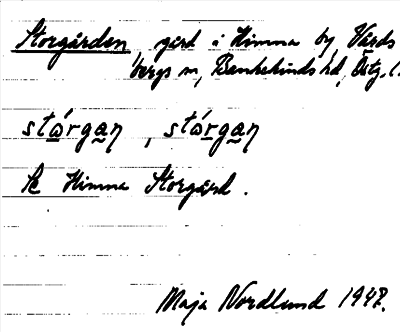 Storgården, gård i Himna by Vårds
bergs sn, Bankekinds hd, Östg. l.
stórgan, stórgan
Se Himna Storgård.
Maja Nordlund 1947.